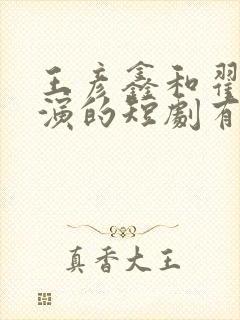 王彦鑫和翟
演的短劇有
真香大王